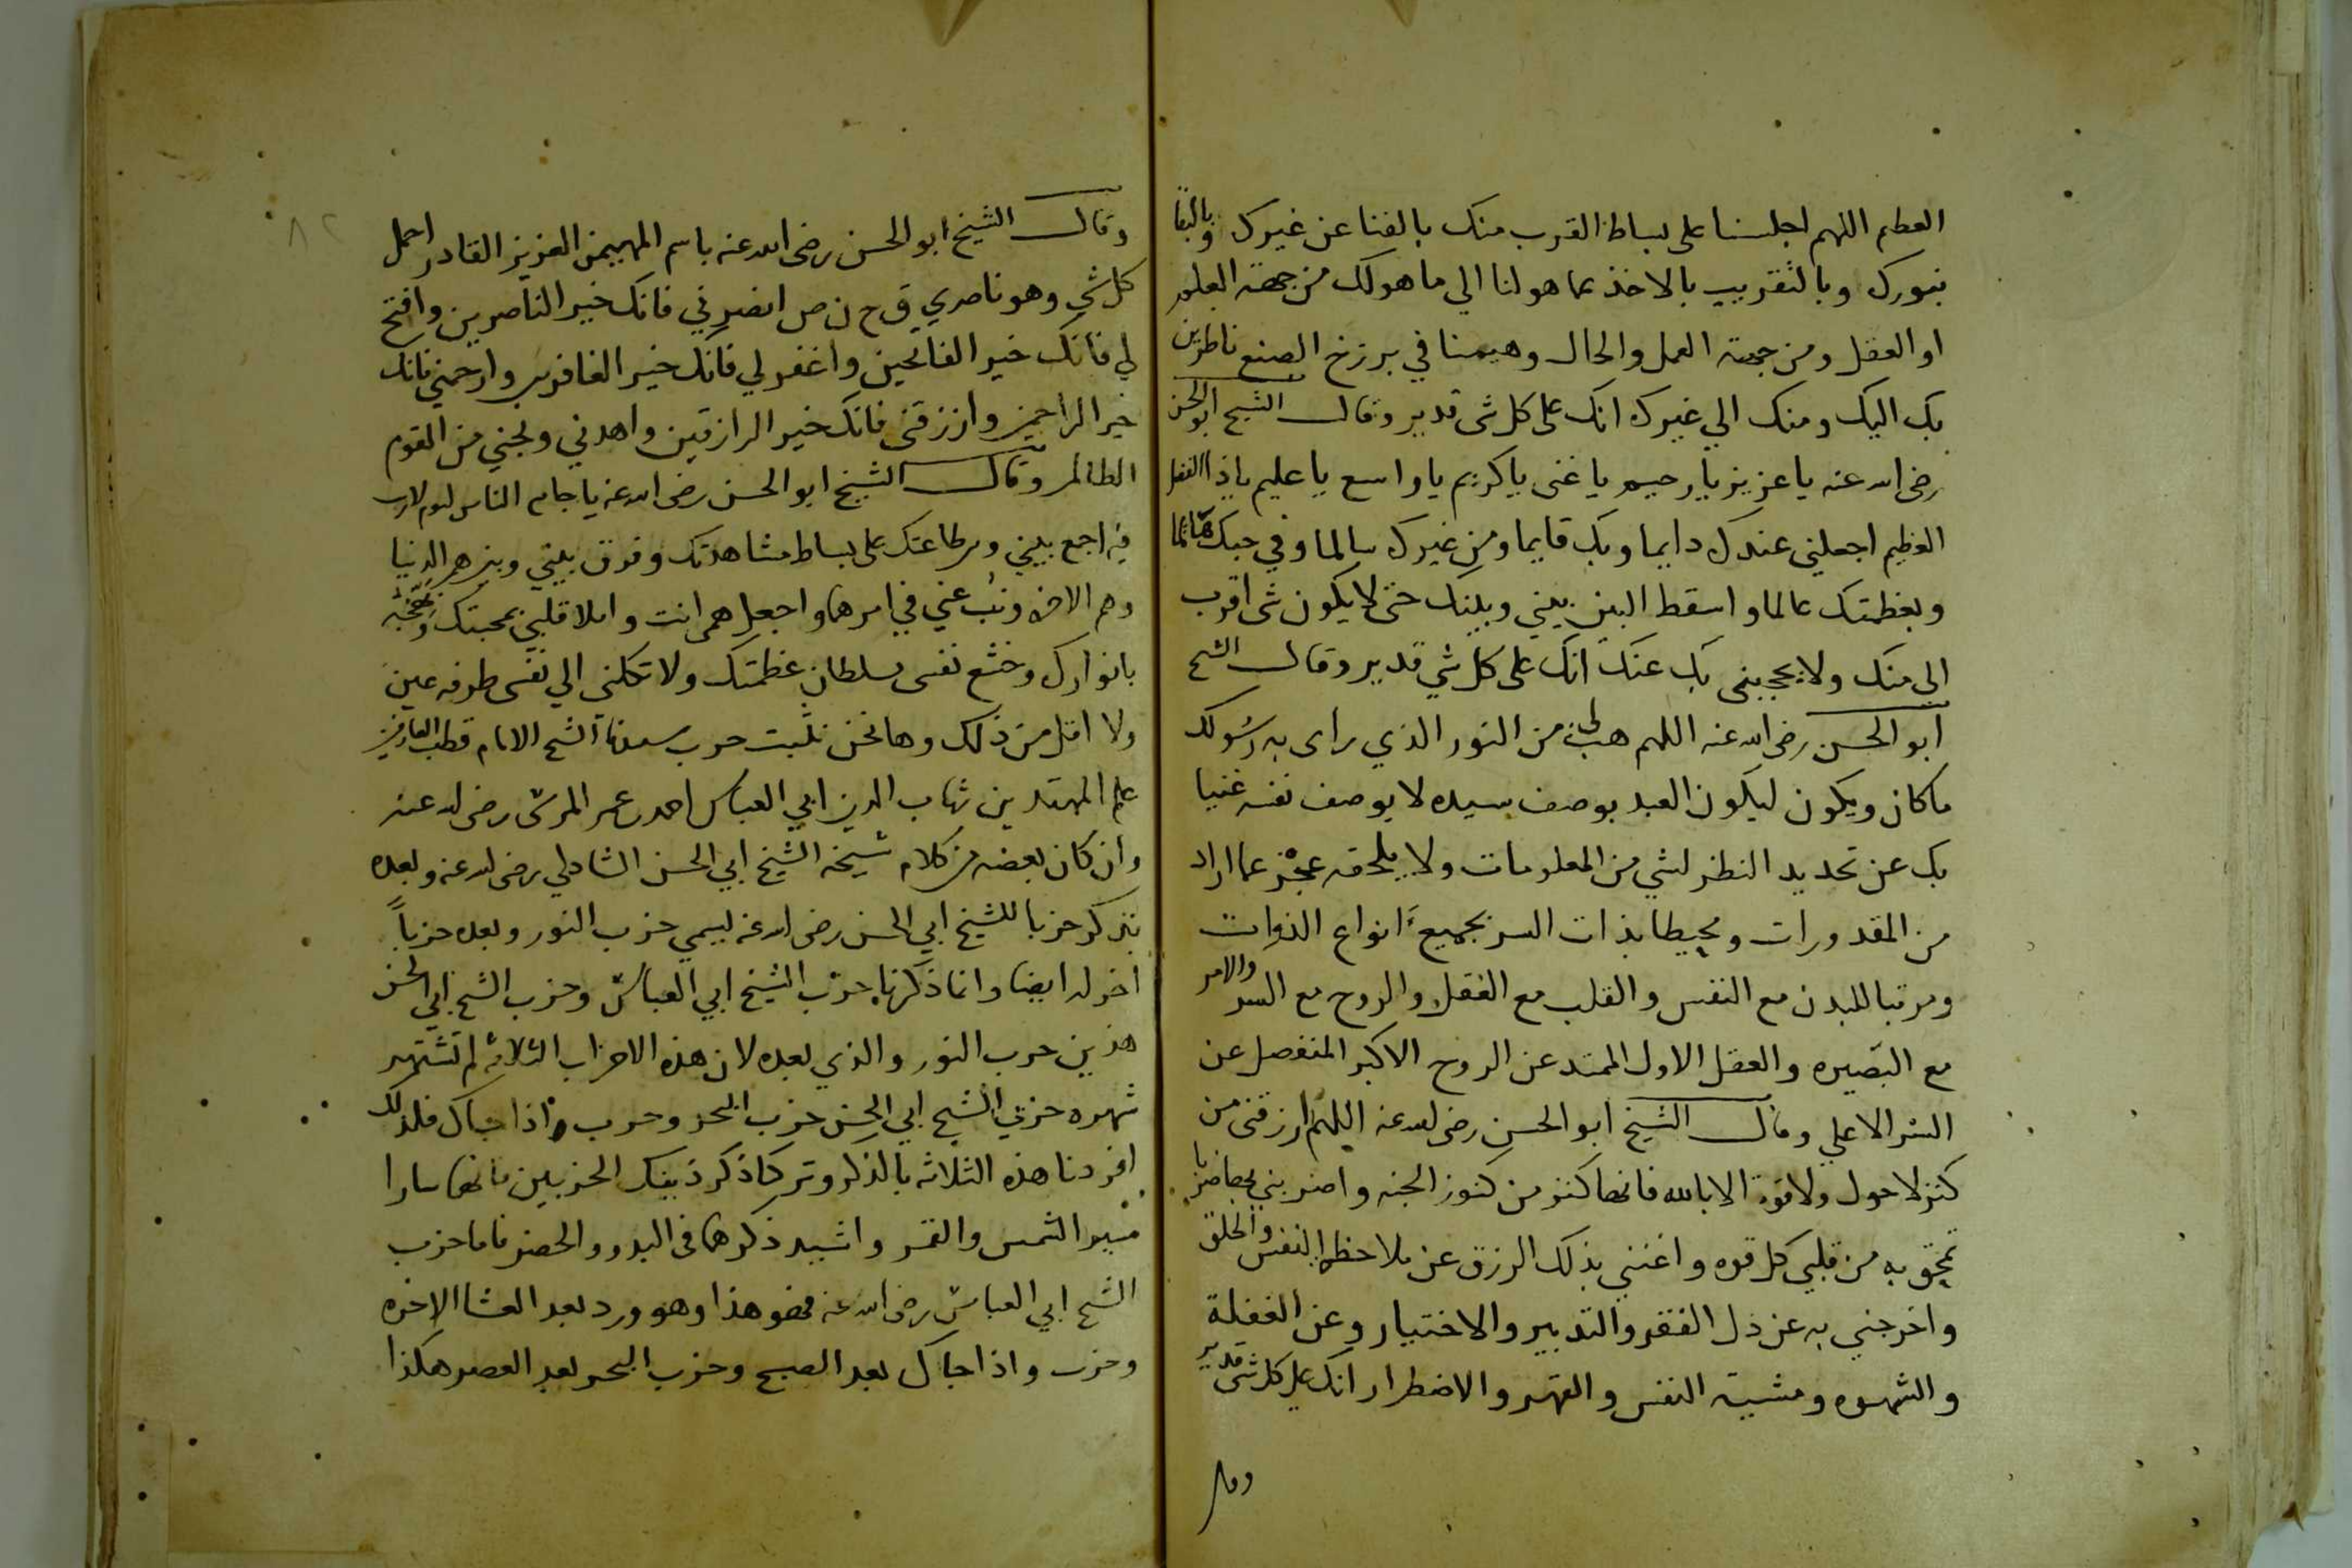 العظيم اللهم اجلسنا على بساط القرب منك بالفنا عن غيرك وبالبقا
بنورك وبالتقريب بالاخذ عما هو لنا الي ما هو لك من جهة العلم
او العقل ومن جهة العمل والحال وهيمنا في برزخ الصنع ناظرين
بك اليك ومنك الي غيرك انك على كل شى قدير وقال الشيخ ابو الحسن
رضى الله عنه يا عزيز يا رحيم يا غنى يا كريم يا واسع يا عليم يا ذا الفضل
العظيم اجعلني عندك دايما وبك قايما ومن غيرك سالما وفي حبك هائما
وبعظمتك عالما واسقط البين بيني وبينك حتى لا يكون شى اقرب
الى منك ولا يحجبنى بك عنك انك على كل شي قدير وقال الشيخ
ابو الحسن رضى الله عنه اللهم هب لى من النور الذي راى به رسولك
ما كان ويكون ليكون العبد بوصف سيده لا بوصف نفسه غنيا
بك عن تحديد النظر لشي من المعلومات ولا يلحقه عجز عما اراد
من المقدورات ومحيطا بذات السر بجميع انواع الذوات
ومرتبا للبدن مع النفس والقلب مع العقل والروح مع السر والامر
مع البصيره والعقل الاول الممتد عن الروح الاكبر المنفصل عن
السر الاعلي وقال الشيخ ابو الحسن رضى الله عنه اللهم ارزقنى من
كنز لا حول ولا قوة الا بالله فانها كنز من كنوز الجنه واضربني بها ضربا
تمحق به من قلبي كل قوه واغنني بذلك الرزق عن ملاحظه النفس والخلق
واخرجني به عن ذل الفقر والتدبير والاختيار وعن الغفلة
والشهوه ومشية النفس والقهر والاضطرار انك على كل شى قدير
وقال
٨٢
وقال الشيخ ابو الحسن رضى الله عنه باسم المهيمن العزيز القادر اجل
كل شي وهو ناصري ق ج ن ص انصرني فانك خير الناصرين وافتح
لي فانك خير الفاتحين واغفر لي فانك خير الغافرين وارحمني فانك
خير الراحمين وارزقنى فانك خير الرازقين واهدني ونجني من القوم
الظالمين وقال الشيخ ابو الحسن رضى الله عنه يا جامع الناس ليوم لا ريب
فيه اجمع بيني وبين طاعتك على بساط مشاهدتك وفرق بيني وبين هم الدنيا
وهم الاخره ونب عني في امرهما واجعل همى انت واملا قلبي بمحبتك
بانوارك وخشع نفسى بسلطان عظمتك ولا تكلنى الي نفسى طرفه عين
ولا اقل من ذلك وها نحن نثبت حزب سيدنا الشيخ الامام قطب العارفين
علم المهتدين شهاب الدين ابي العباس احمد بن عمر المرسى رضى الله عنه
وان كان بعضه من كلام شيخه الشيخ ابي الحسن الشاذلي رضى الله عنه وبعده
نذكر حزبا للشيخ ابي الحسن رضى الله عنه يسمي حزب النور وبعده حزباً
اخر له ايضا وانما ذكرنا حزب الشيخ ابي العباس وحزب الشيخ ابي الحسن
هذين حزب النور والذي بعده لان هذه الاحزاب الثلاثه لم تشتهر
شهره حزبي الشيخ ابي الحسن حزب البحر وحزب واذا جاك فلذلك
افردنا هذه الثلاثه بالذكر وتركنا ذكر ذينك الحزبين فانهما سارا
مسير الشمس والقمر واشيد ذكرهما في البدو والحضر فاما حزب
الشيخ ابي العباس رضى الله عنه فهو هذا وهو ورد بعد العشا الاخره
وحزب واذا جاك بعد الصبح وحزب البحر بعد العصر هكذا